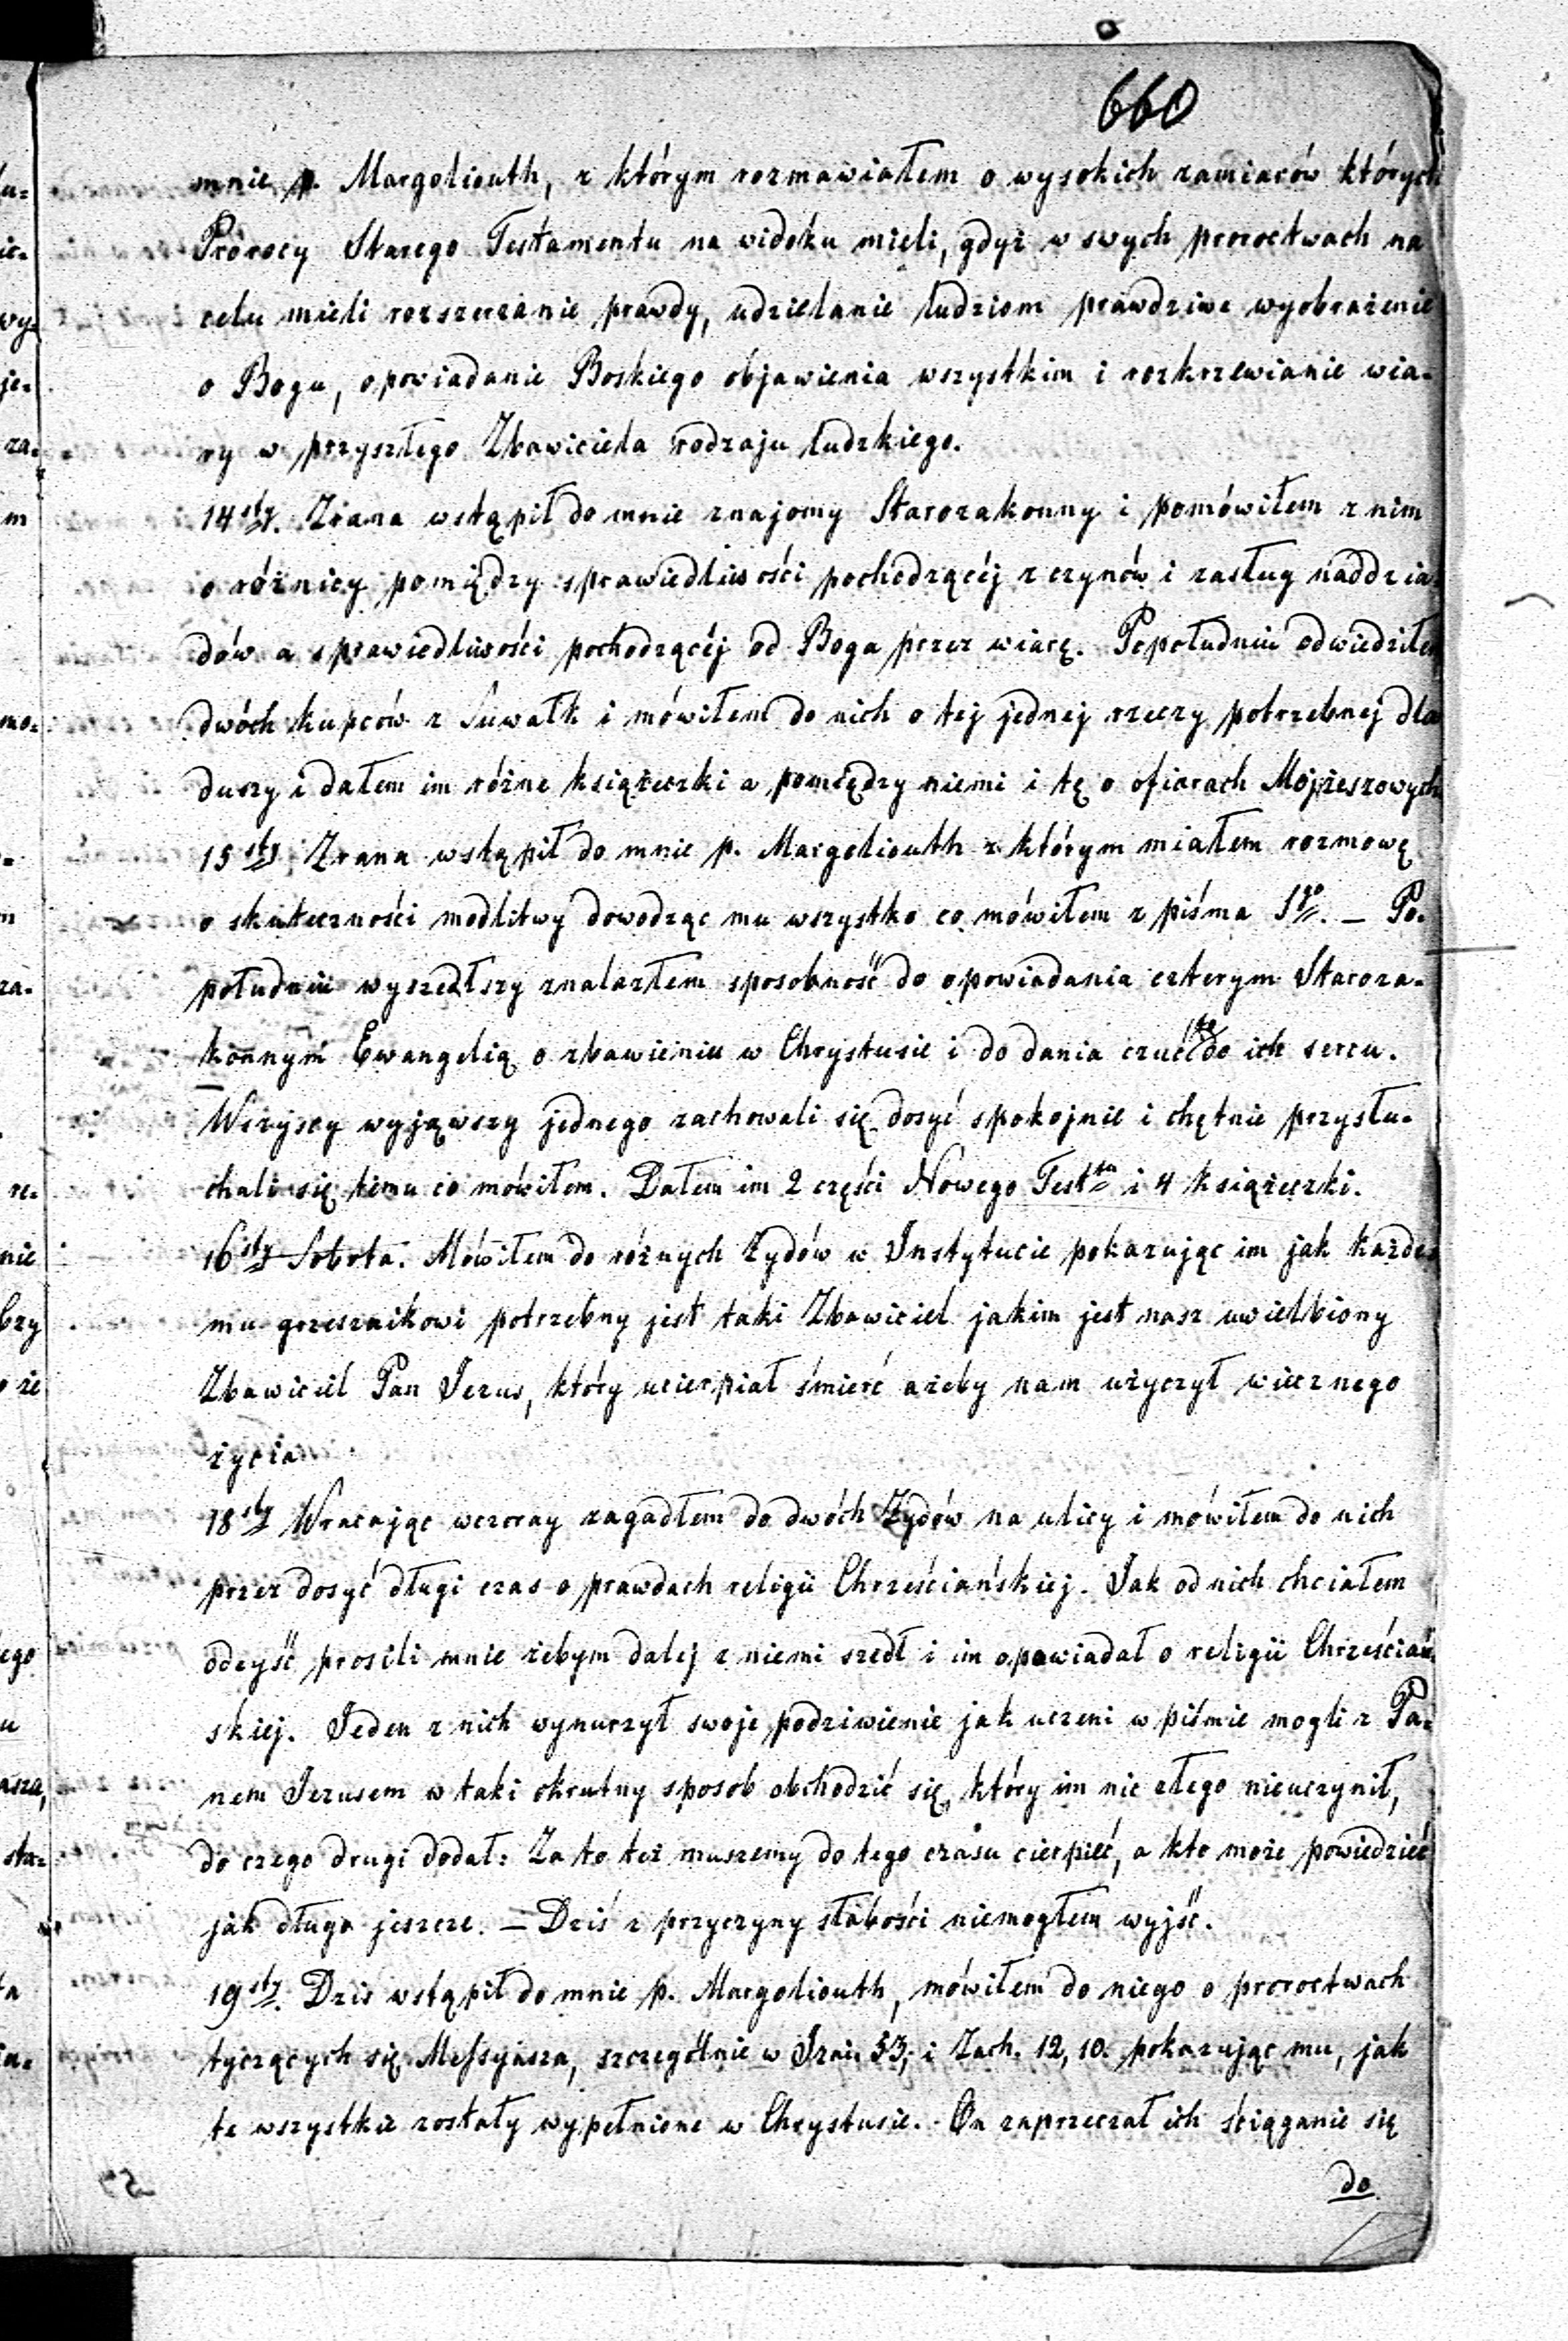 660
mnie p. Margoliouth, z którym rozmawiałem o wysokich zamiarów których
Prorocy Starego Testamentu na widoku mieli, gdyż w swych proroctwach na
celu mieli rozszerzanie prawdy, udzielanie ludziom prawdziwe wyobrażenie
o Bogu, opowiadanie Boskiego objawienia wszystkim i rozkrzewianie wia-
ry w przyszłego Zbawiciela rodzaju ludzkiego.
14sty. Zrana wstąpił do mnie znajomy Starozakonny i pomówiłem z nim
o różnicy pomiędzy sprawiedliwości pochodzącéj z czynów i zasług naddzia-
dów a sprawiedliwości pochodzącéj od Boga przez wiarę. Popołudniu odwiedziłem
dwóch kupców z Suwałk i mówiłem do nich o tej jednej rzeczy potrzebnej dla
duszy i dałem im różne książeczki a pomiędzy niemi i tę o ofiarach Mojżeszowych
15sty Zrana wstąpił do mnie p. Margoliouth z którym miałem rozmowę
o skuteczności modlitwy dowodząc mu wszystko co mówiłem z piśma Sgo. – Po-
południu wyszedłszy znalazłem sposobność do opowiadania czterym Staroza-
konnym Ewangelią o zbawieniu w Chrystusie i do dania czuć to do ich sercu.
Wszyscy wyjąwszy jednego zachowali się dosyć spokojnie i chętnie przysłu-
chali się temu co mówiłem. Dałem im 2 części Nowego Testtu i 4 książeczki.
16sty Sobota. Mówiłem do różnych Żydów w Instytucie pokazując im jak każde-
mu grzesznikowi potrzebny jest taki Zbawiciel jakim jest nasz uwielbiony
Zbawiciel Pan Jezus, który ucierpiał śmierć ażeby nam użyczył wiecznego
życia
18sty Wracając wczoray zagadłem do dwóch Żydów na ulicy i mówiłem do nich
przez dosyć długi czas o prawdach religii Chrześciańskiej. Jak od nich chciałem
odeyść prosili mnie żebym dalej z niemi szedł i im opowiadał o religii Chrześciań-
skiej. Jeden z nich wynurzył swoje podziwienie jak uczeni w piśmie mogli z Pa-
nem Jezusem w taki okrutny sposob obchodzić się, który im nic złego nieuczynił,
do czego drugi dodał: Za to też muszemy do tego czasu cierpieć, a kto może powiedzieć
jak długo jeszcze. – Dziś z przyczyny słabości niemogłem wyjść.
19sty. Dzis wstąpił do mnie p. Margoliouth, mówiłem do niego o proroctwach
tyczących się Messyasza, szczególnie w Izai. 53, i Zach. 12, 10. pokazując mu, jak
te wszystkie zostały wypełnione w Chrystusie. On zaprzeczał ich ściąganie się
do